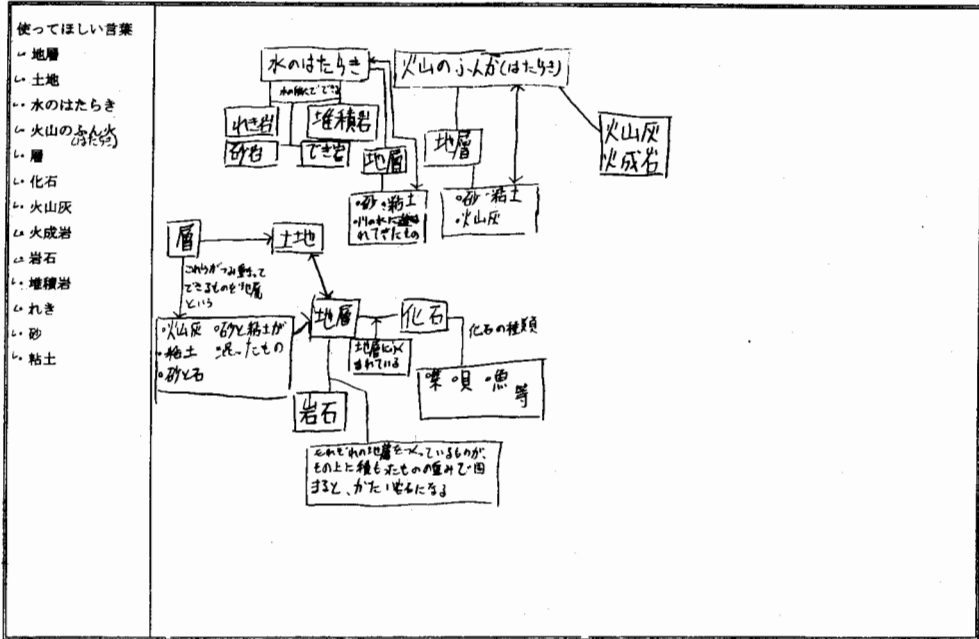 使ってほしい言葉
地層
土地
水のはたらき
火山のふん火
(はたらき)
層
化石
火山灰
火成岩
岩石
堆積岩
れき
砂
粘土
水のはたらき
水の働きでできる
れき岩
堆積岩
砂岩
でき岩
地層
・砂・粘土
・川の水に運ば
れてきたもの
火山のふんか(はたらき)
地層
・砂・粘土
・火山灰
火山灰
火成岩
層
土地
これらがつみ重なって
できるものを地層
という
・火山灰 ・砂と粘土が
・粘土 混ったもの
・砂と石
地層
地層にふく
まれている
化石
化石の種類
・葉・貝・魚
等
岩石
それぞれの地層をつくっているものが、
その上に積もったものの重みで固
まると、かたい岩石になる